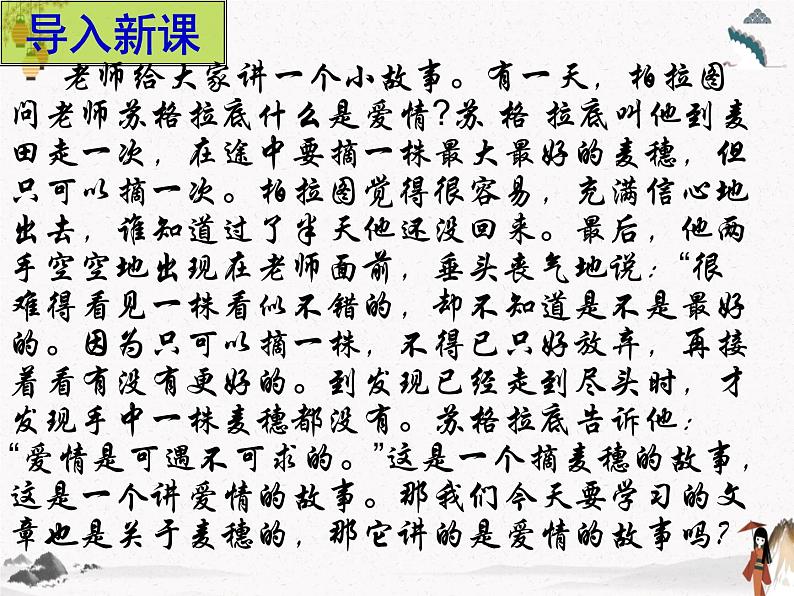 导入新课
老师给大家讲一个小故事。有一天，柏拉图
问老师苏格拉底什么是爱情?苏 格 拉底叫他到麦
田走一次，在途中要摘一株最大最好的麦穗，但
只可以摘一次。柏拉图觉得很容易，充满信心地
出去，谁知道过了半天他还没回来。最后，他两
手空空地出现在老师面前，垂头丧气地说：“很
难得看见一株看似不错的，却不知道是不是最好
的。因为只可以摘一株，不得已只好放弃，再接
着看有没有更好的。到发现已经走到尽头时，才
发现手中一株麦穗都没有。苏格拉底告诉他：
“爱情是可遇不可求的。”这是一个摘麦穗的故事，
这是一个讲爱情的故事。那我们今天要学习的文
章也是关于麦穗的，那它讲的是爱情的故事吗？